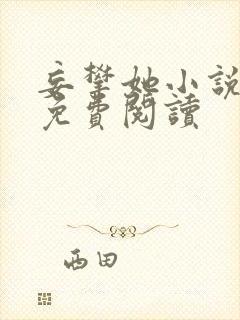 妄攀她小說
免費閱讀
西田